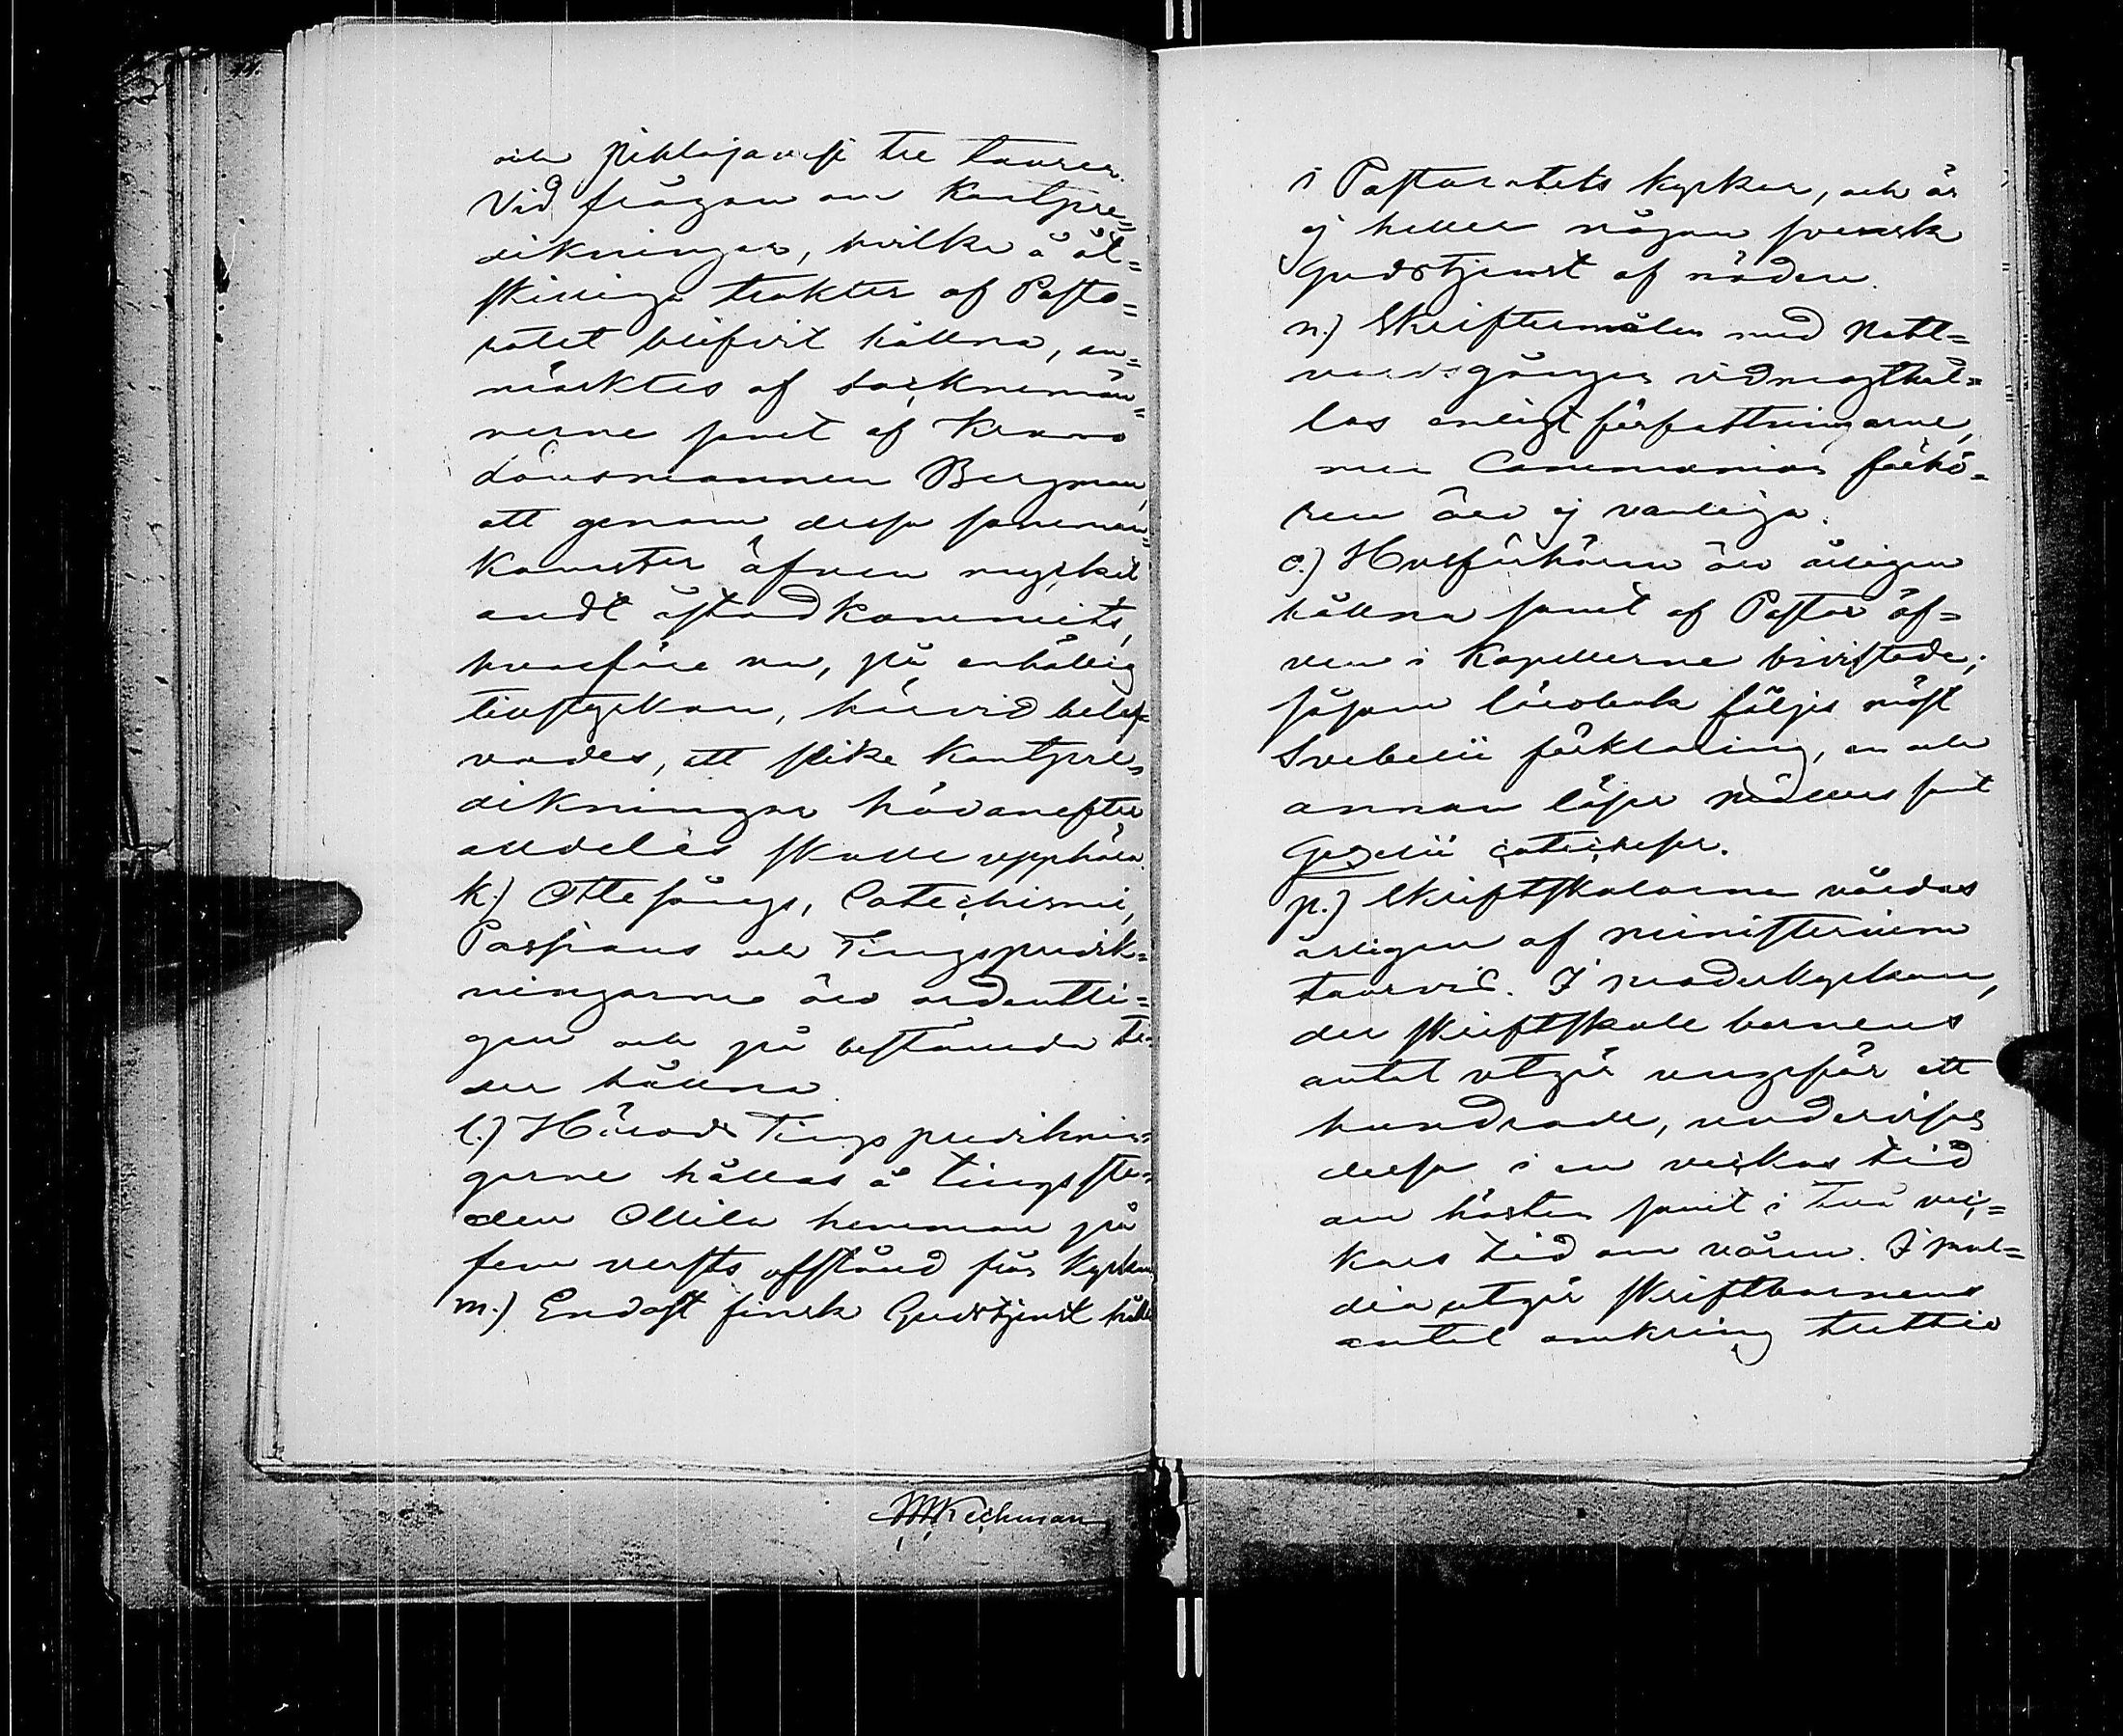 och Pihlajavesi tre tourer.
Vid frågan om Kantpre=
dikningar, hvilka å åt=
skilliga trakter af Pasto=
ratet blifvit hållna, an=
märktes af Socknemän=
nerne samt af Krono
Länsmannen Bergman,
att genom dessa samman=
komster äfven mycket
ondt åstadkommits,
hvarföre nu, på enhällig
tillstyrkan, härvid belef=
vades, att slike Kantpre=
dikningar hädanefter
alldeles skulle upphöra.
k.) Ottesångs, Catechismi,
Passions och Tingspredik=
ningarne äro ordentli=
gen och på bestämda ti=
der hållna.
l.) Härads Tings prediknin=
garne hållas å tingsstä=
den Ollila hemman på
fem versts afstånd från Kyrkan
m.) Endast finsk Gudstjenst hålles
MWKeckman
i Pastoratets kyrkor, och är
ej heller någon svensk
Gudstjenst af nöden.
n.) Skriftermålen med Natt=
vardsgången vidmagthål=
las enligt författningarne,
men Communion förhö=
ren äro ej vanliga.
o.) Husförhören äro årligen
hållna samt af Pastor äf=
ven i Kapellerne bivistade;
såsom lärobok följes mäst
Svebelii förklaring, en och
annan läser Möllers samt
Gezelii catecheser.
p.) Skriftskolorna vårdas
årligen af ministerium
tourvis. I moderkyrkan,
der skriftskole barnens
antal utgör ungefär ett
hundrade, undervisas
dessa i en veckas tid
om hösten samt i två vec=
kors tid om våren. I Mul=
dia utgör skriftbarnens
antal omkring trettio